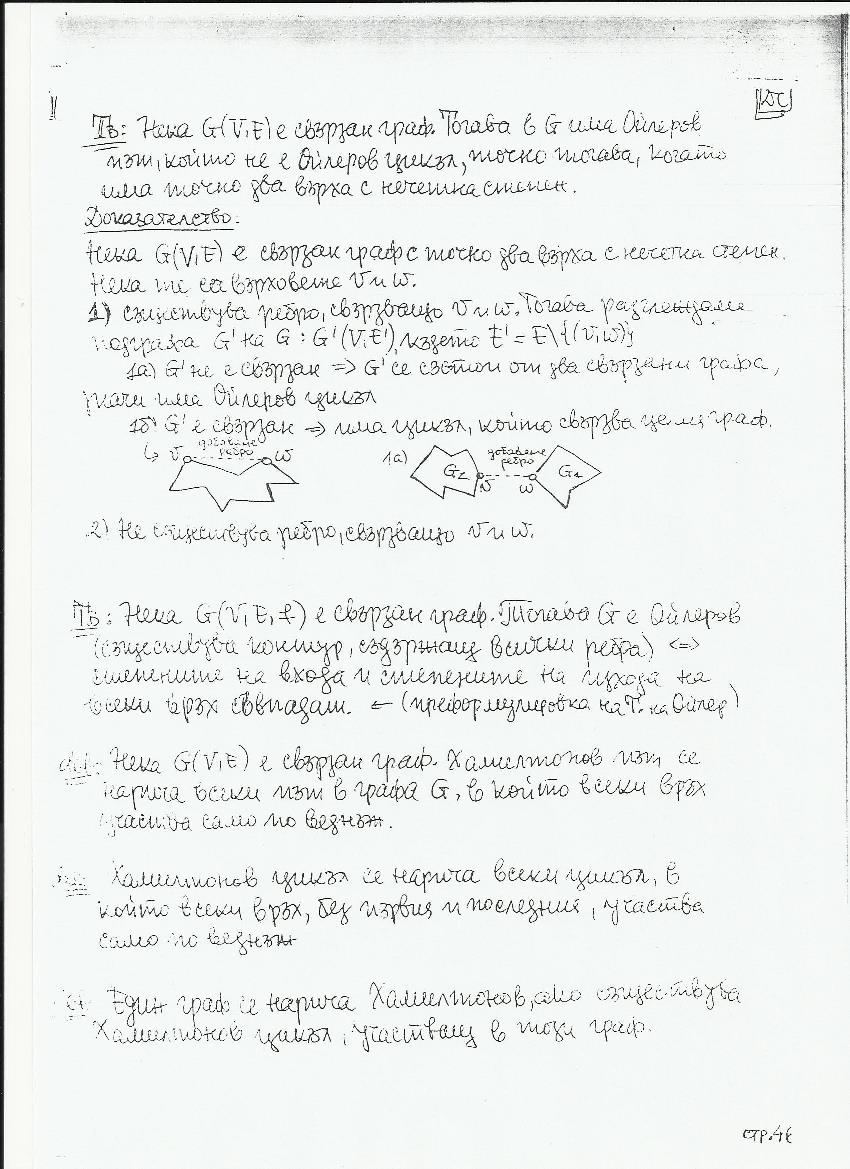 ДС
Тв: Нека G(V,E) е свързан граф. Тогава в G има Ойлеров
път, който не е Ойлеров цикъл, точно тогава, когато
има точно два върха с нечетна степен.
Доказателство:
Нека G(V,E) е свързан граф с точно два върха с нечетна степен.
Нека те са върховете v и w.
1) съществува ребро, свързващо v и w. Тогава разглеждаме
подграфа G' на G : G'(V,E'), където E' = E\{(v,w)}
1а) G' не е свързан => G' се състои от два свързани графа,
значи има Ойлеров цикъл
1б) G' е свързан => има цикъл, който свързва целия граф.
↳ v добавено ребро w 1а) G₂ v добавено ребро w G₁
2) Не съществува ребро, свързващо v и w.
Тв: Нека G(V,E,f) е свързан граф. Тогава G е Ойлеров
(съществува контур, съдържащ всички ребра) <=>
степените на входа и степените на изхода на
всеки връх съвпадат. ← (преформулировка на Т. на Ойлер)
def: Нека G(V,E) е свързан граф. Хамилтонов път се
нарича всеки път в графа G, в който всеки връх
участва само по веднъж.
Хамилтонов цикъл се нарича всеки цикъл, в
който всеки връх, без първия и последния, участва
само по веднъж
Един граф се нарича Хамилтонов, ако съществува
Хамилтонов цикъл, участващ в този граф.
стр. 46